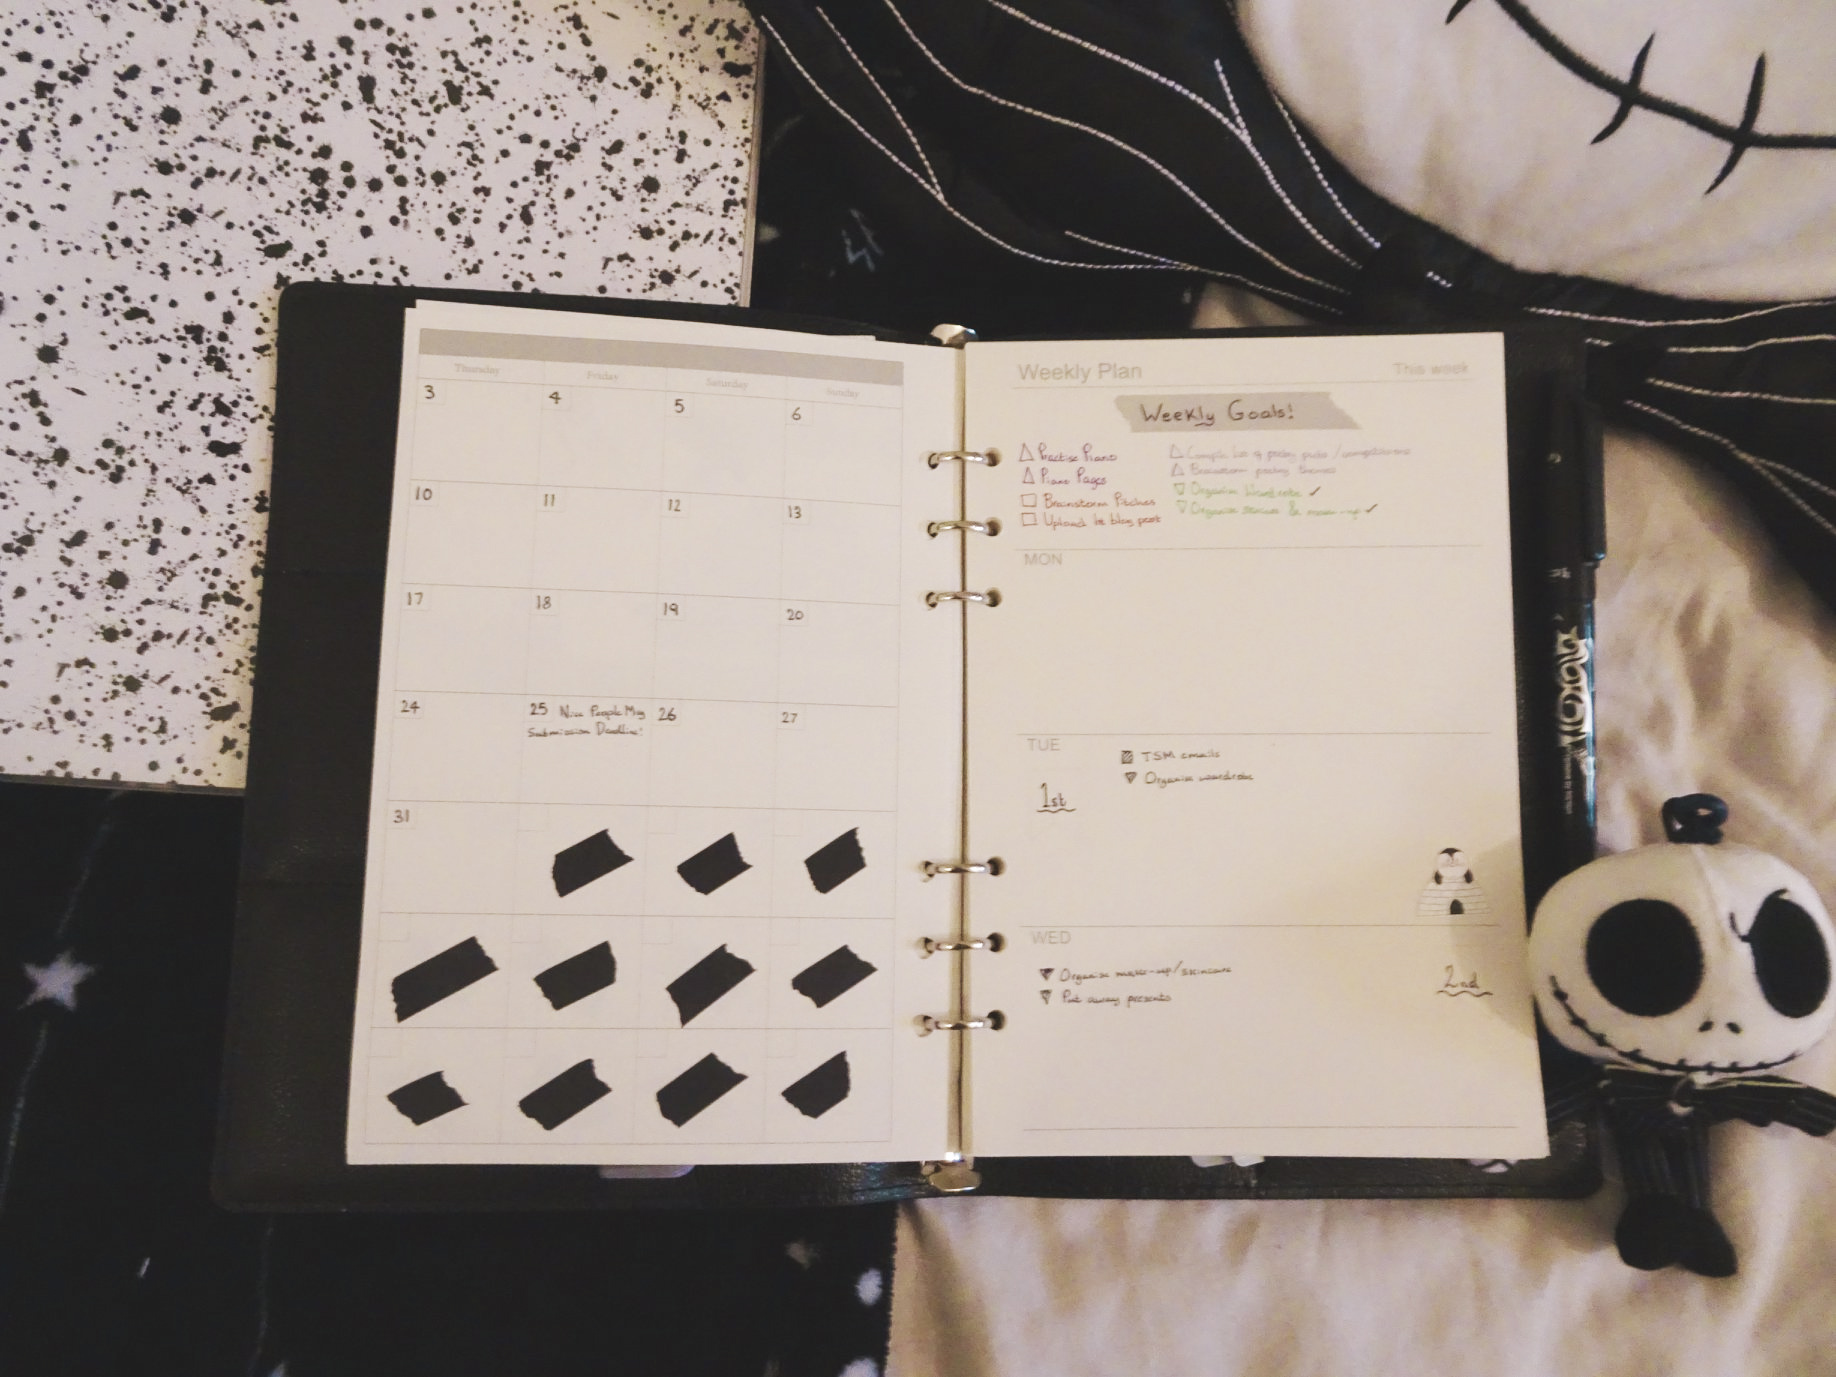 Thursday Friday Saturday Sunday
3 4 5 6
10 11 12 13
17 18 19 20
24 25 Nice People Mag 26 27
Submission Deadline!
31
Weekly Plan This week
Weekly Goals!
Practise Piano
Piano Pages
Brainstorm Pitches
Upload 1st blog post
Compile list of poetry pubs / competitions
Brainstorm poetry themes
Organise Wardrobe ✓
Organise skincare & make-up ✓
MON
TUE
1st
TSM emails
Organise wardrobe
WED
2nd
Organise make-up/skincare
Put away presents